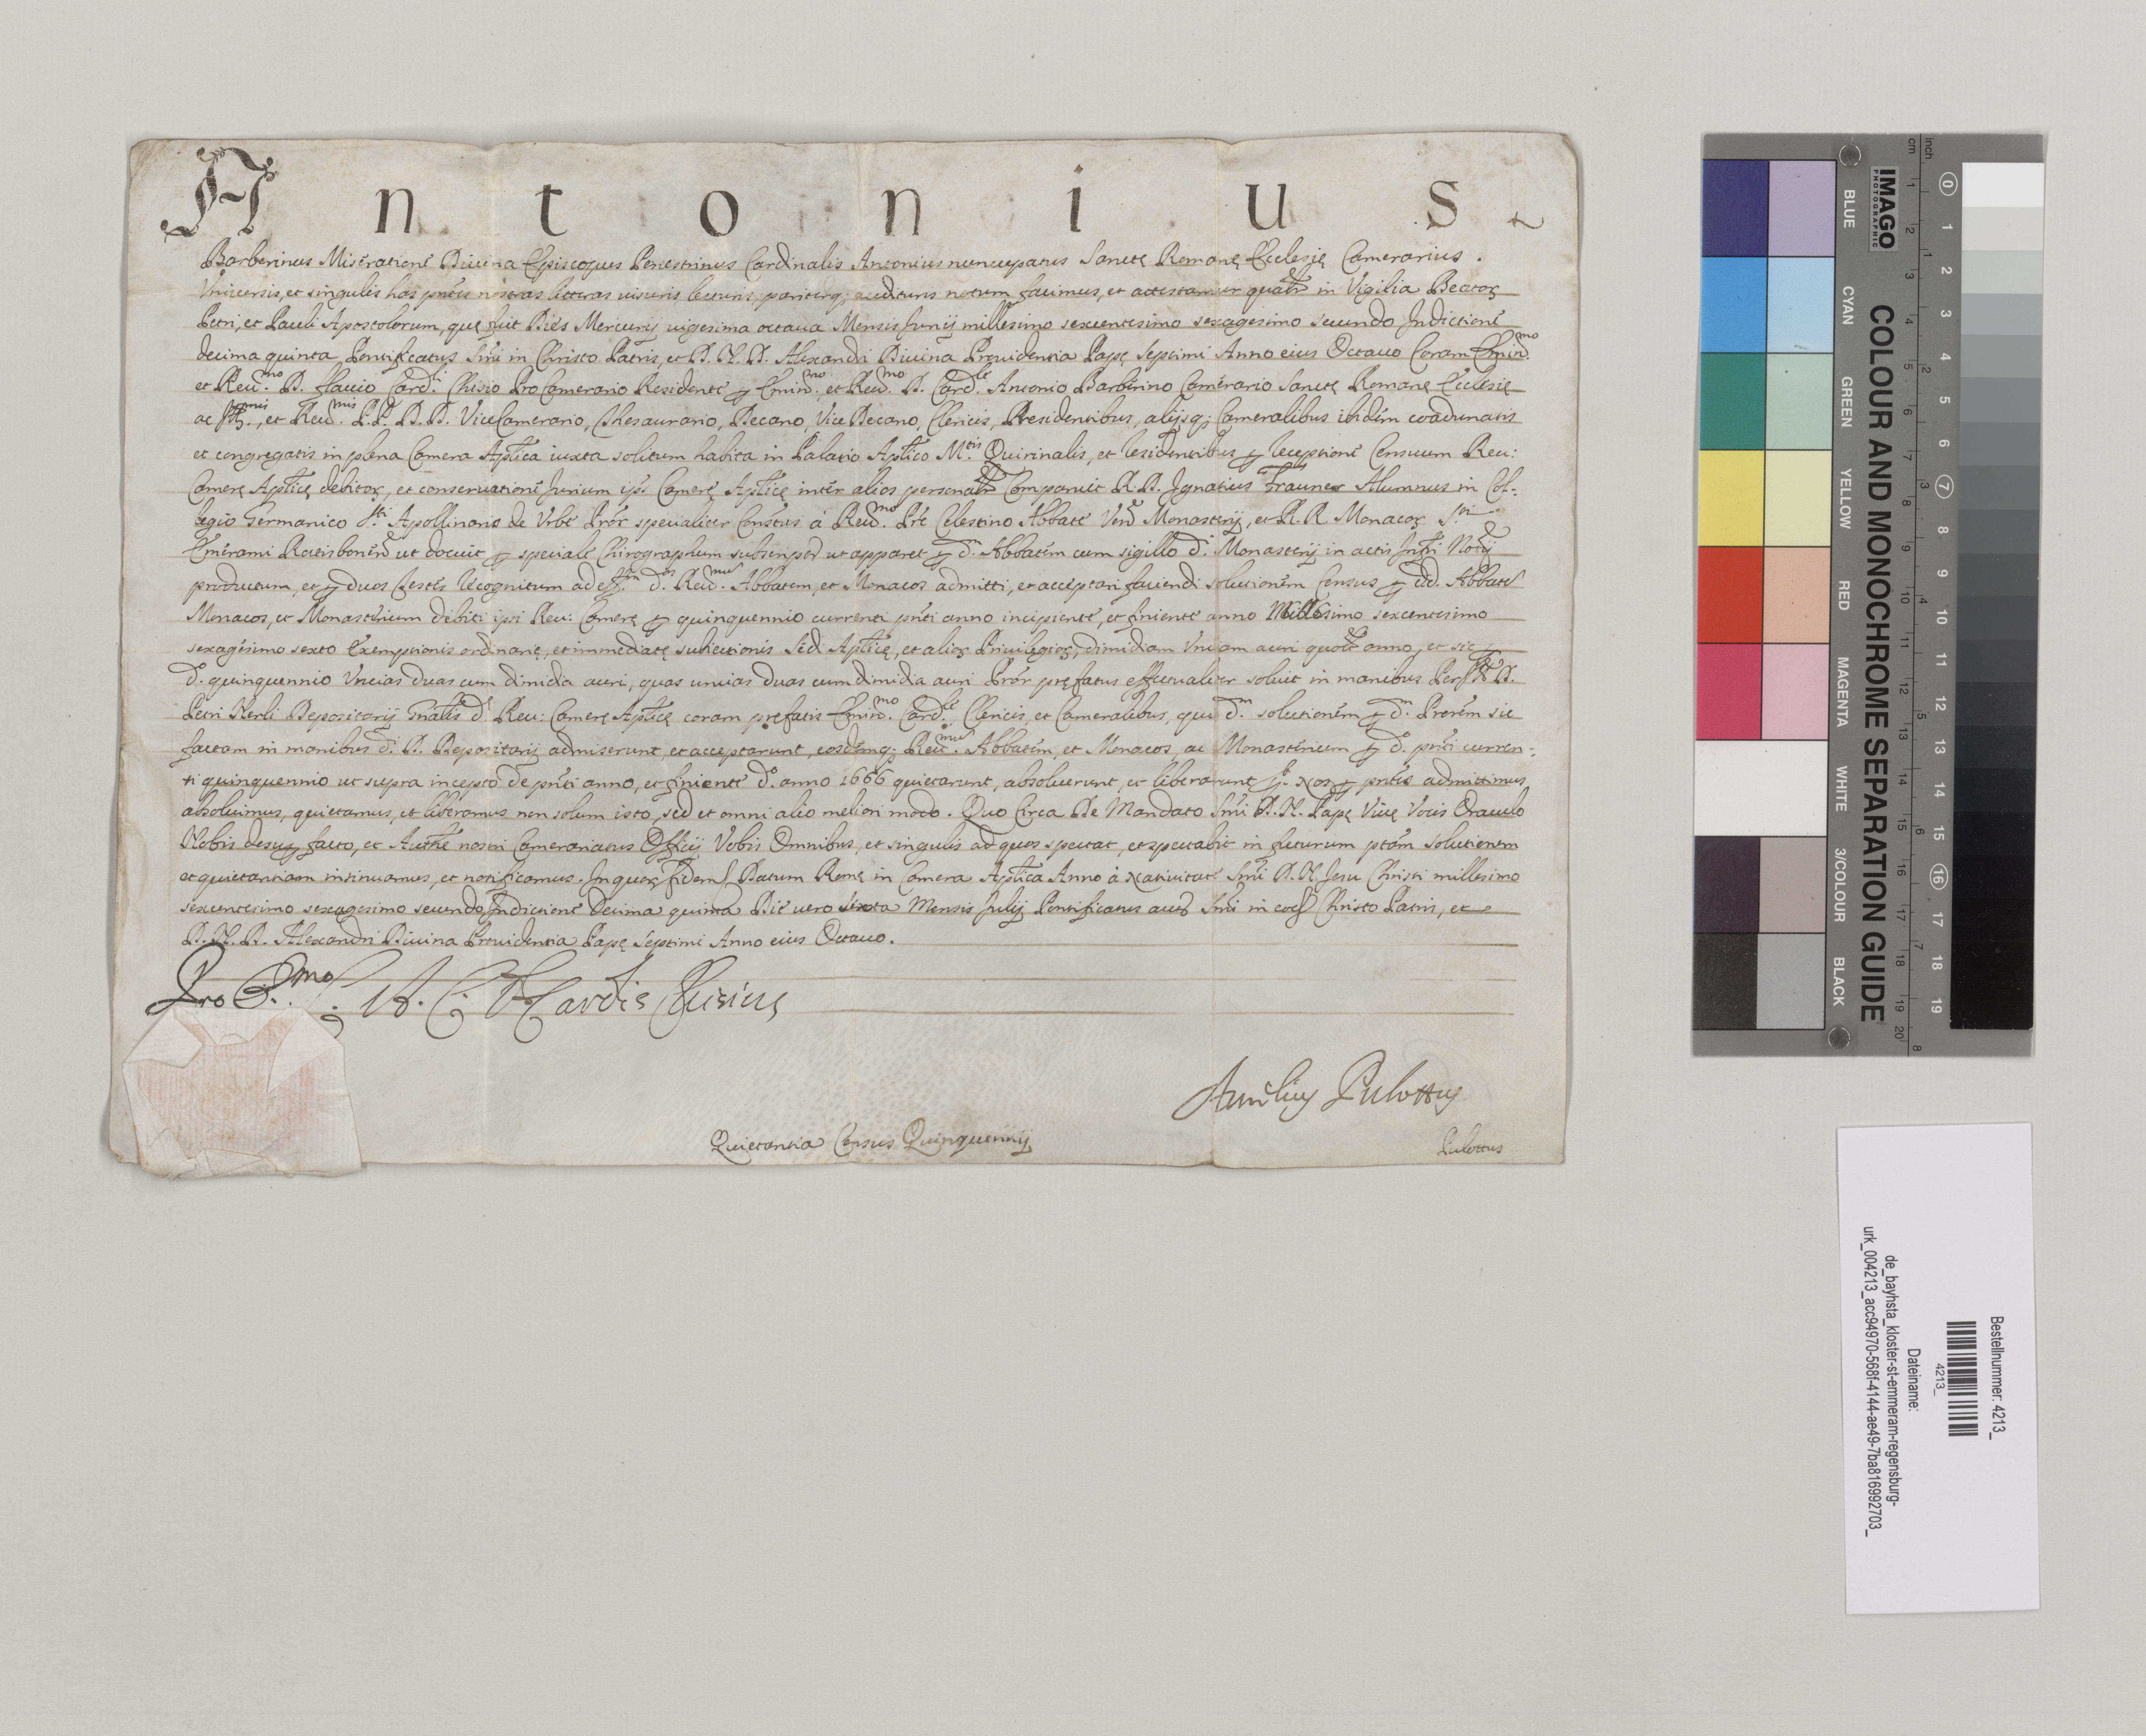 Antonius
Barberinus Miseratione Diuina Episcopus Penestrinus Cardinalis Antonius nuncupatus Sanctę Romanę Ecclesię Camerarius.
Vniuersis, et singulis has pntes nostras litteras uisuris lecturis, pariterq; audituris notum facimus, et attestamur qualr in Vigilia Beator
Petri, et Pauli Apostolorum, quę fuit Dies Mercurij uigesima octaua Mensis Junij millesimo sexcentesimo sexagesimo secundo Indictione
decima quinta, Pontificatus Smi in Christo Patris, et D. N. D. Alexandri Diuina Prouidentia Papę Septimi Anno eius Octauo Coram Emin.mo
et Reu.mo D. Flauio Card.li Chisio Pro Camerario Residente p Emin.mo et Reu.mo D. Card.le Antonio Barberino Camerario Sanctę Romanę Ecclesię
ac Ill.mis, et Reu.mis P.P. D.D. ViceCamerario, Thesaurario, Decano, Vice Decano, Clericis, Presidentibus, alijsq; Cameralibus ibidem coadunatis
et congregatis in plena Camera Aptica iuxta solitum habita in Palatio Aptico M.tis Quirinalis, et residentibus p receptione Censuum Reu:
Camerę Apticę debitor, et conseruatione Jurium ips Camerę Apticę inter alios personalr Comparuit R. D. Ignatius Frauner Alumnus in Col-
legio Germanico S.ti Apollinaris de Vrbe Pror specialiter Constus à Reu.mo Pre Celestino Abbate Ven Monasterij, et R. R. Monacor S.ti
Emerami Ratisbonen ut docuit p speciale Chirographum subscript ut apparet p d.m Abbatem cum sigillo d.i Monasterij in actis Infri Notrij
productum, et p duos testes recognitum ad eff.m d.os Reu.mum Abbatem, et Monacos admitti, et acceptari faciendi solutionem Census p dd. Abbate
Monacos, et Monasterium debiti ipsi Reu: Camerę p quinquennio currenti pnti anno incipiente, et finiente anno Millesimo sexcentesimo
sexagesimo sexto Exemptionis ordinarię, et immediatę subiectionis Sedi Apticę, et alior Privilegior, dimidiam Vnciam auri quolt anno, et sic p
d.o quinquennio Vncias duas cum dimidia auri, quas uncias duas cum dimidia auri Pror pręfatus effectualiter soluit in manibus Perill D.
Petri Nerli Depositarij Gnalis d.e Reu: Camerę Apticę coram prefatis Emin.mo Card.le, Clericis, et Cameralibus, qui d.m solutionem p d.m Prorem sic
factam in manibus d.i D. Depositarij admiserunt, et acceptarunt, eosdemq; Reu.mum Abbatem, et Monacos, ac Monasterium p d.o pnti curren-
ti quinquennio ut supra incepto de pnti anno, et finiente d.o anno 1666 quietarunt, absoluerunt, et liberarunt Nos p pntes admittimus,
absoluimus, quietamus, et liberamus non solum isto, sed et omni alio meliori modo. Quo Circa De Mandato Smi D. N. Papę Viuę Vocis Oraculo
Nobis desup facto, et Authte nostri Camerariatus Officij Vobis Omnibus, et singulis ad quos spectat, et spectabit in futurum ptam solutionem
et quietantiam insinuamus, et notificamus. In quor fidem Datum Romę in Camera Aptica Anno à Natiuitate Smi D. N. Jesu Christi millesimo
sexcentesimo sexagesimo secundo Indictione Decima quinta Die uero sexta Mensis Julij Pontificatus aut Smi in eod Christo Patris, et
D. N. D. Alexandri Diuina Prouidentia Papę Septimi Anno eius Octauo.
Pro E.mo Cardlis Chisius
Aurelius Pulottus
Quietantia Census Quinquennij
Pulottus
IMAGO
PHOTOGRAPHIC
COLOUR AND MONOCHROME SEPARATION GUIDE
BLUE CYAN GREEN YELLOW RED MAGENTA WHITE 3/COLOUR BLACK
cm 1 2 3 4 5 6 7 8 9 10 11 12 13 14 15 16 17 18 19 20
inch 1 2 3 4 5 6 7 8
0 1 2 3 4 5 6 7 8 9 10 11 12 13 14 15 16 17 18 19
Bestellnummer: 4213_
4213_
Dateiname:
de_bayhsta_kloster-st-emmeram-regensburg-
urk_004213_acc94970-568f-4144-ae49-7ba816992703_